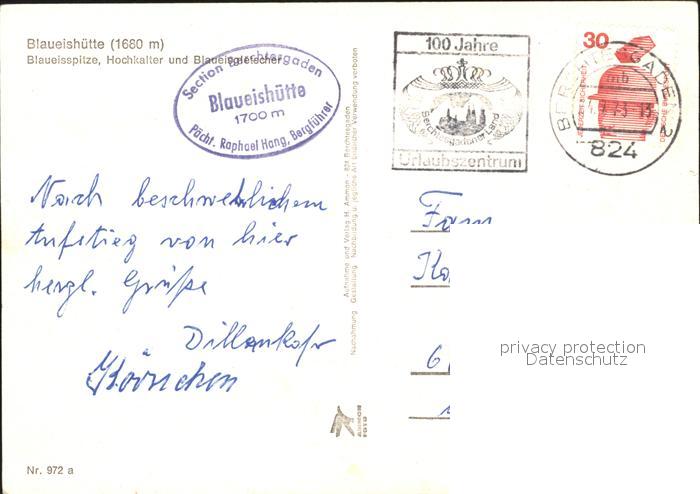 Blaueishütte (1680 m)
Blaueisspitze, Hochkalter und Blaueisgletscher
Section Berchtesgaden
Blaueishütte
1700 m
Pächt. Raphael Hang, Bergführer
100 Jahre
Berchtesgadener Land
Urlaubszentrum
30
BERCHTESGADEN 2
mb
824
Nach beschwerlichem
Aufstieg von hier
herzl. Grüße
Fam
Ka
6
privacy protection
Datenschutz
Aufnahme und Verlag H. Ammon · 824 Berchtesgaden
Nachahmung, Gestaltung, Nachbildung u. jegliche Art bildlicher Verwendung verboten
AMMON
FOTO
Nr. 972 a